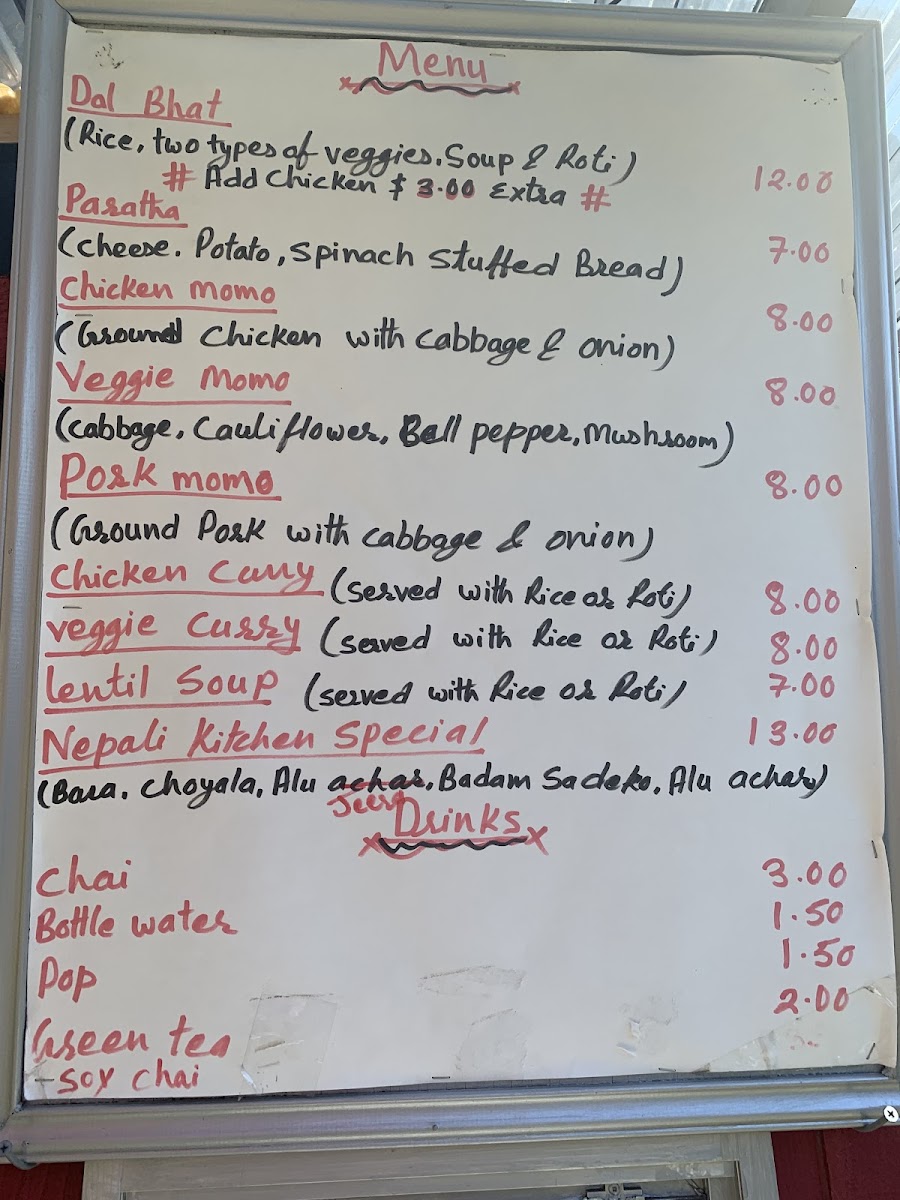 Menu
Dal Bhat
(Rice, two types of veggies, Soup & Roti) 12.00
# Add Chicken $ 3.00 Extra #
Paratha 7.00
(cheese. Potato, Spinach Stuffed Bread)
Chicken momo 8.00
(Ground Chicken with cabbage & onion)
Veggie Momo 8.00
(cabbage, Cauliflower, Bell pepper, Mushroom)
Pork momo 8.00
(Ground Pork with cabbage & onion)
Chicken Curry (served with Rice or Roti) 8.00
veggie curry (served with Rice or Roti) 8.00
lentil Soup (served with Rice or Roti) 7.00
Nepali Kitchen Special 13.00
(Bara, Choyala, Alu achar, Badam Sadeko, Alu achar)
Jeera
Drinks
Chai 3.00
Bottle water 1.50
Pop 1.50
Green tea 2.00
- Soy chai